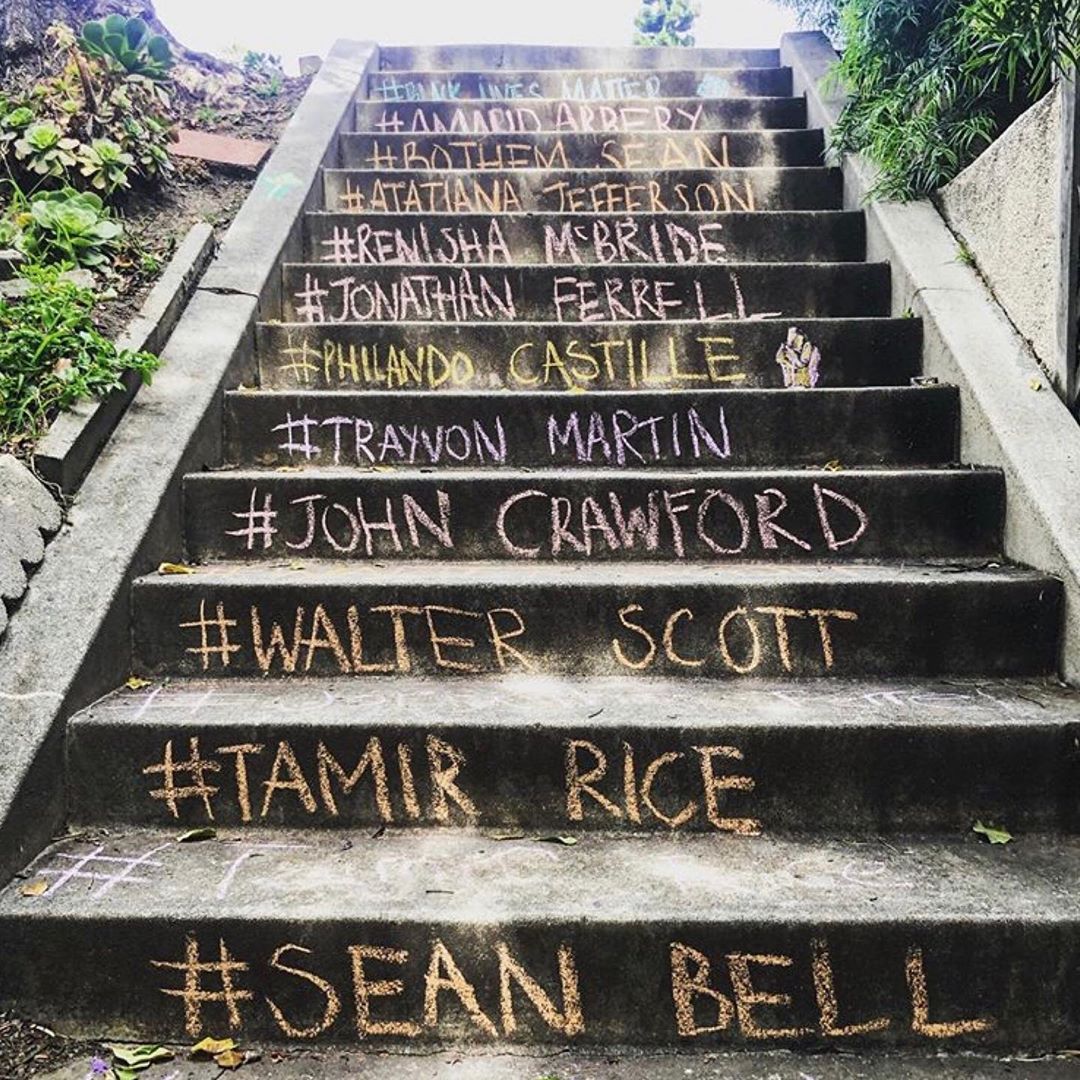 #BLACK LIVES MATTER
#AMAUD ARBERY
#BOTHEM SEAN
#ATATIANA JEFFERSON
#RENISHA McBRIDE
#JONATHAN FERRELL
#PHILANDO CASTILLE
#TRAYVON MARTIN
#JOHN CRAWFORD
#WALTER SCOTT
#TAMIR RICE
#SEAN BELL